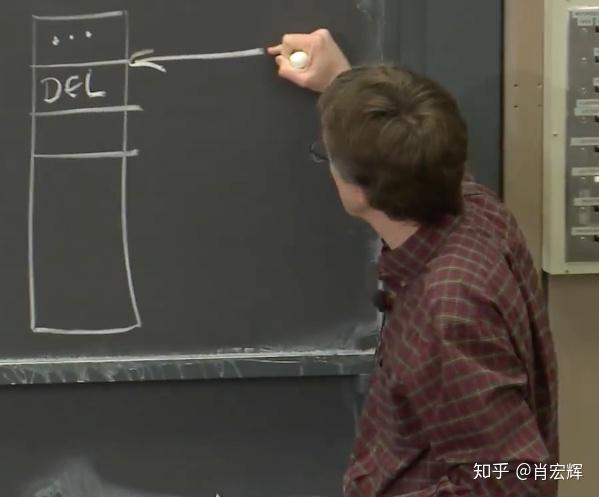 ...
DEL
知乎 @肖宏辉